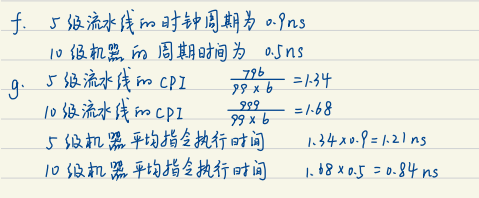 f. 5级流水线的时钟周期为 0.9ns
10级机器的周期时间为 0.5ns
g. 5级流水线的CPI 796/99×6 =1.34
10级流水线的CPI 999/99×6 =1.68
5级机器平均指令执行时间 1.34×0.9=1.21ns
10级机器平均指令执行时间 1.68×0.5=0.84ns